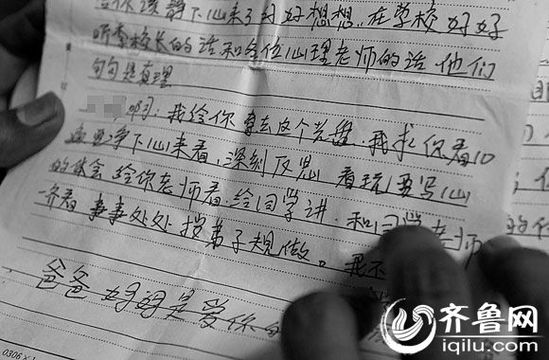 你该静下心来了好好想想，在学校好好
听李校长的话和各位心理老师的话，他们
句句是真理
啊：我给你寄去这个光盘，我求你看10
遍，静下心来看，深刻反思，看玩要写心
的体会，给你老师看，给同学讲，和同学老师
一齐看，事事处处按弟子规做。我不
爸爸妈妈是爱你的
0306
齐鲁网
iqilu.com